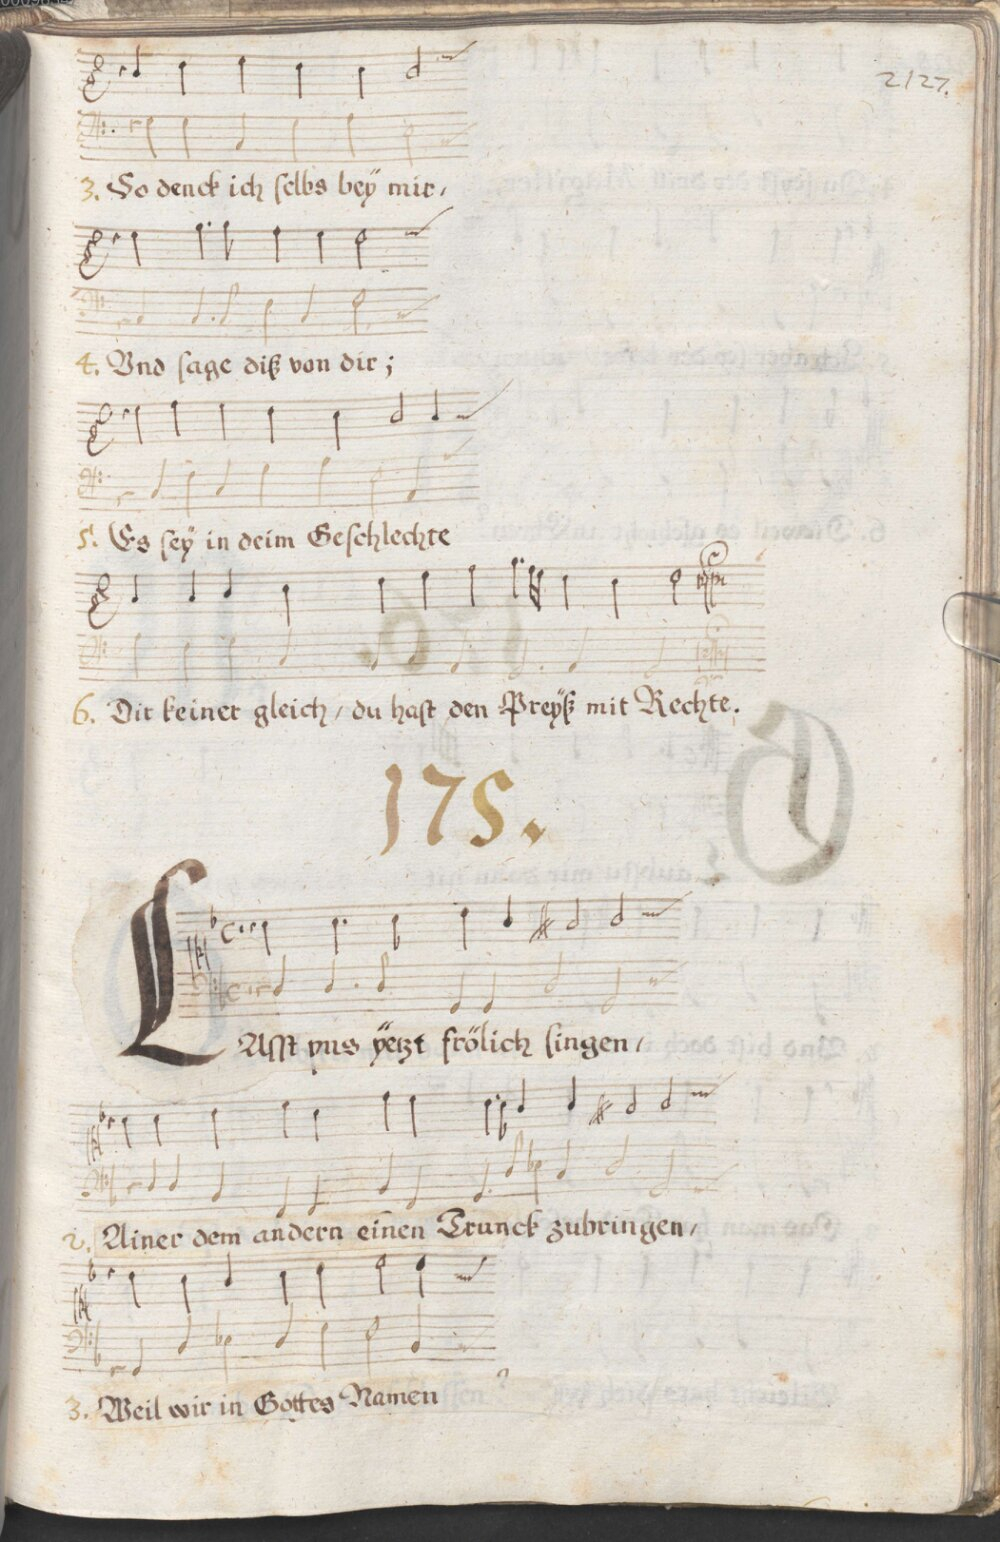 2127.
3. So denck ich selbs bey mir,
4. Vnd sage diß von dir;
5. Es seÿ in deim Geschlechte
6. Dir keiner gleich, du hast den Preÿß mit Rechte.
175.
LAsst vns ÿetzt frölich singen,
2. Ainer dem andern einen Trunck zubringen,
3. Weil wir in Gottes Namen